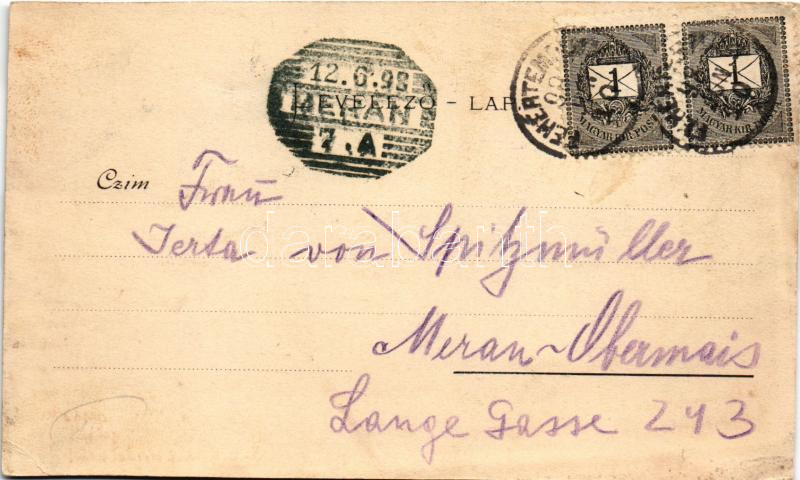 12.6.98
MERAN
7.A
LEVELEZŐ - LAP
FEHÉRTEM
1
MAGYAR KIR. POSTA
1
MAGYAR KIR. POSTA
Czim
Frau
Jerta von Spitzmüller
Meran-Obermais
Lange Gasse 243
darabanth